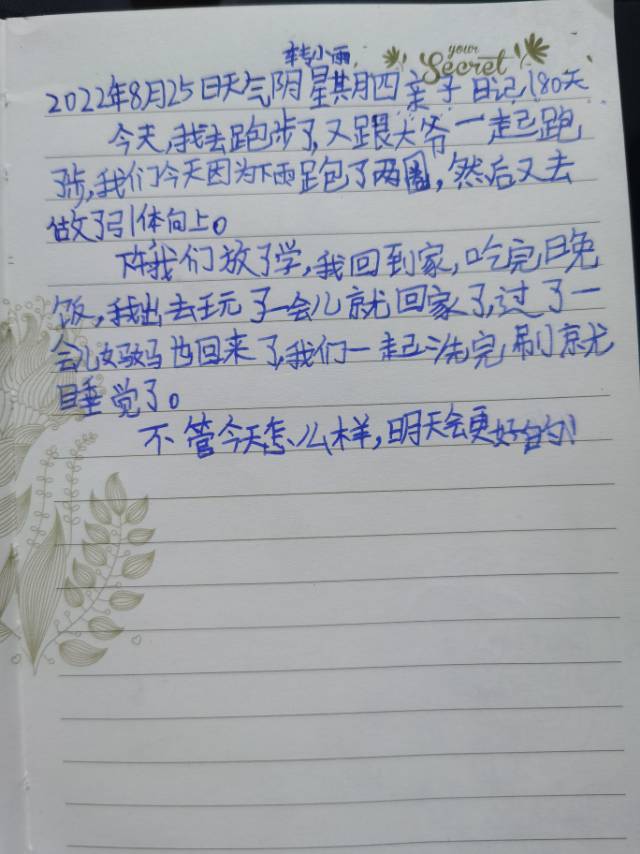 your
Secret
转小雨
2022年8月25日天气阴星期四亲子日记180天
今天,我去跑步了,又跟大爷一起跑
步,我们今天因为下雨跑了两圈,然后又去
做了引体向上。
下午我们放了学,我回到家,吃完晚
饭,我出去玩了一会儿就回家了,过了一
会儿妈妈也回来了,我们一起洗完刷就
睡觉了。
不管今天怎么样,明天会更好的!